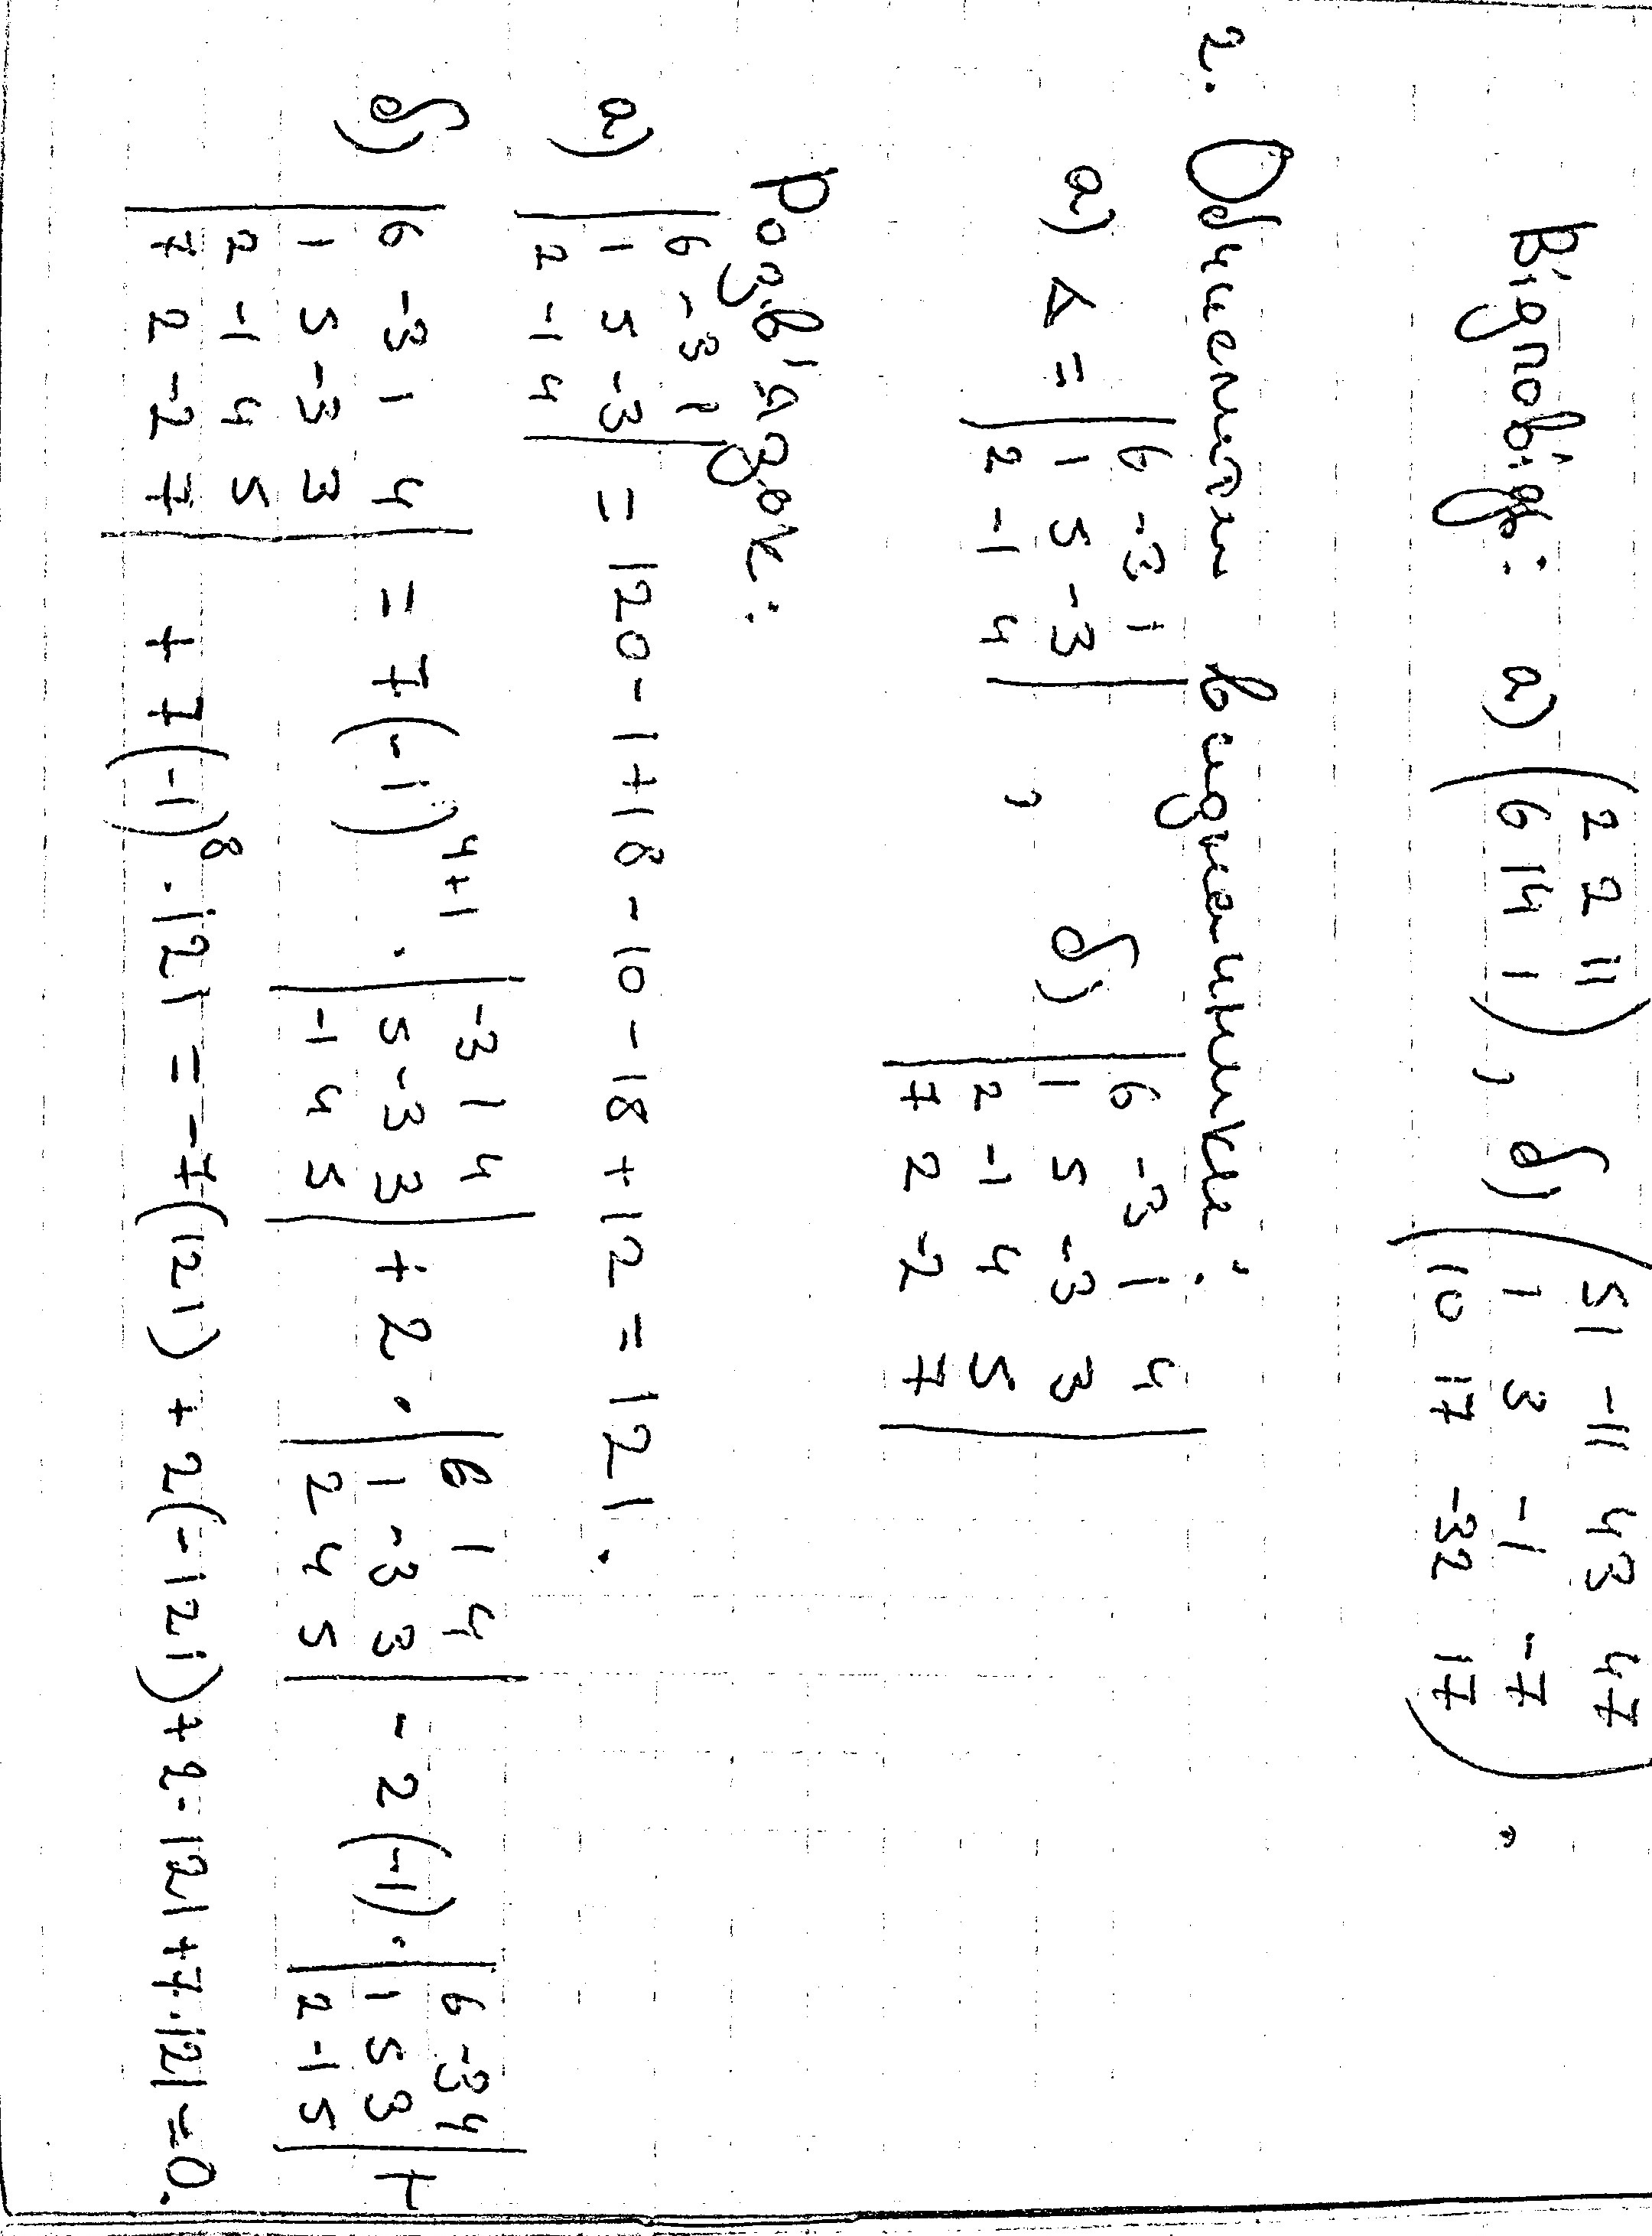 Відповідь: а) ( 2 2 11
6 14 1 ) , б) ( 51 -11 43 47
1 3 -1 -7
10 17 -32 17 ) .
2. Обчислити визначники:
а) Δ = | 6 -3 1
1 5 -3
2 -1 4 | , б) | 6 -3 1 4
1 5 -3 3
2 -1 4 5
7 2 -2 7 |
Розв'язок:
а) | 6 -3 1
1 5 -3
2 -1 4 | = 120 - 1 + 18 - 10 - 18 + 12 = 121.
б) | 6 -3 1 4
1 5 -3 3
2 -1 4 5
7 2 -2 7 | = 7(-1)^{4+1} · | -3 1 4
5 -3 3
-1 4 5 | + 2 · | 6 1 4
1 -3 3
2 4 5 | - 2(-1) · | 6 -3 4
1 5 3
2 -1 5 | +
+ 7(-1)^8 · 121 = -7(121) + 2(-121) + 2·121 + 7·121 = 0.